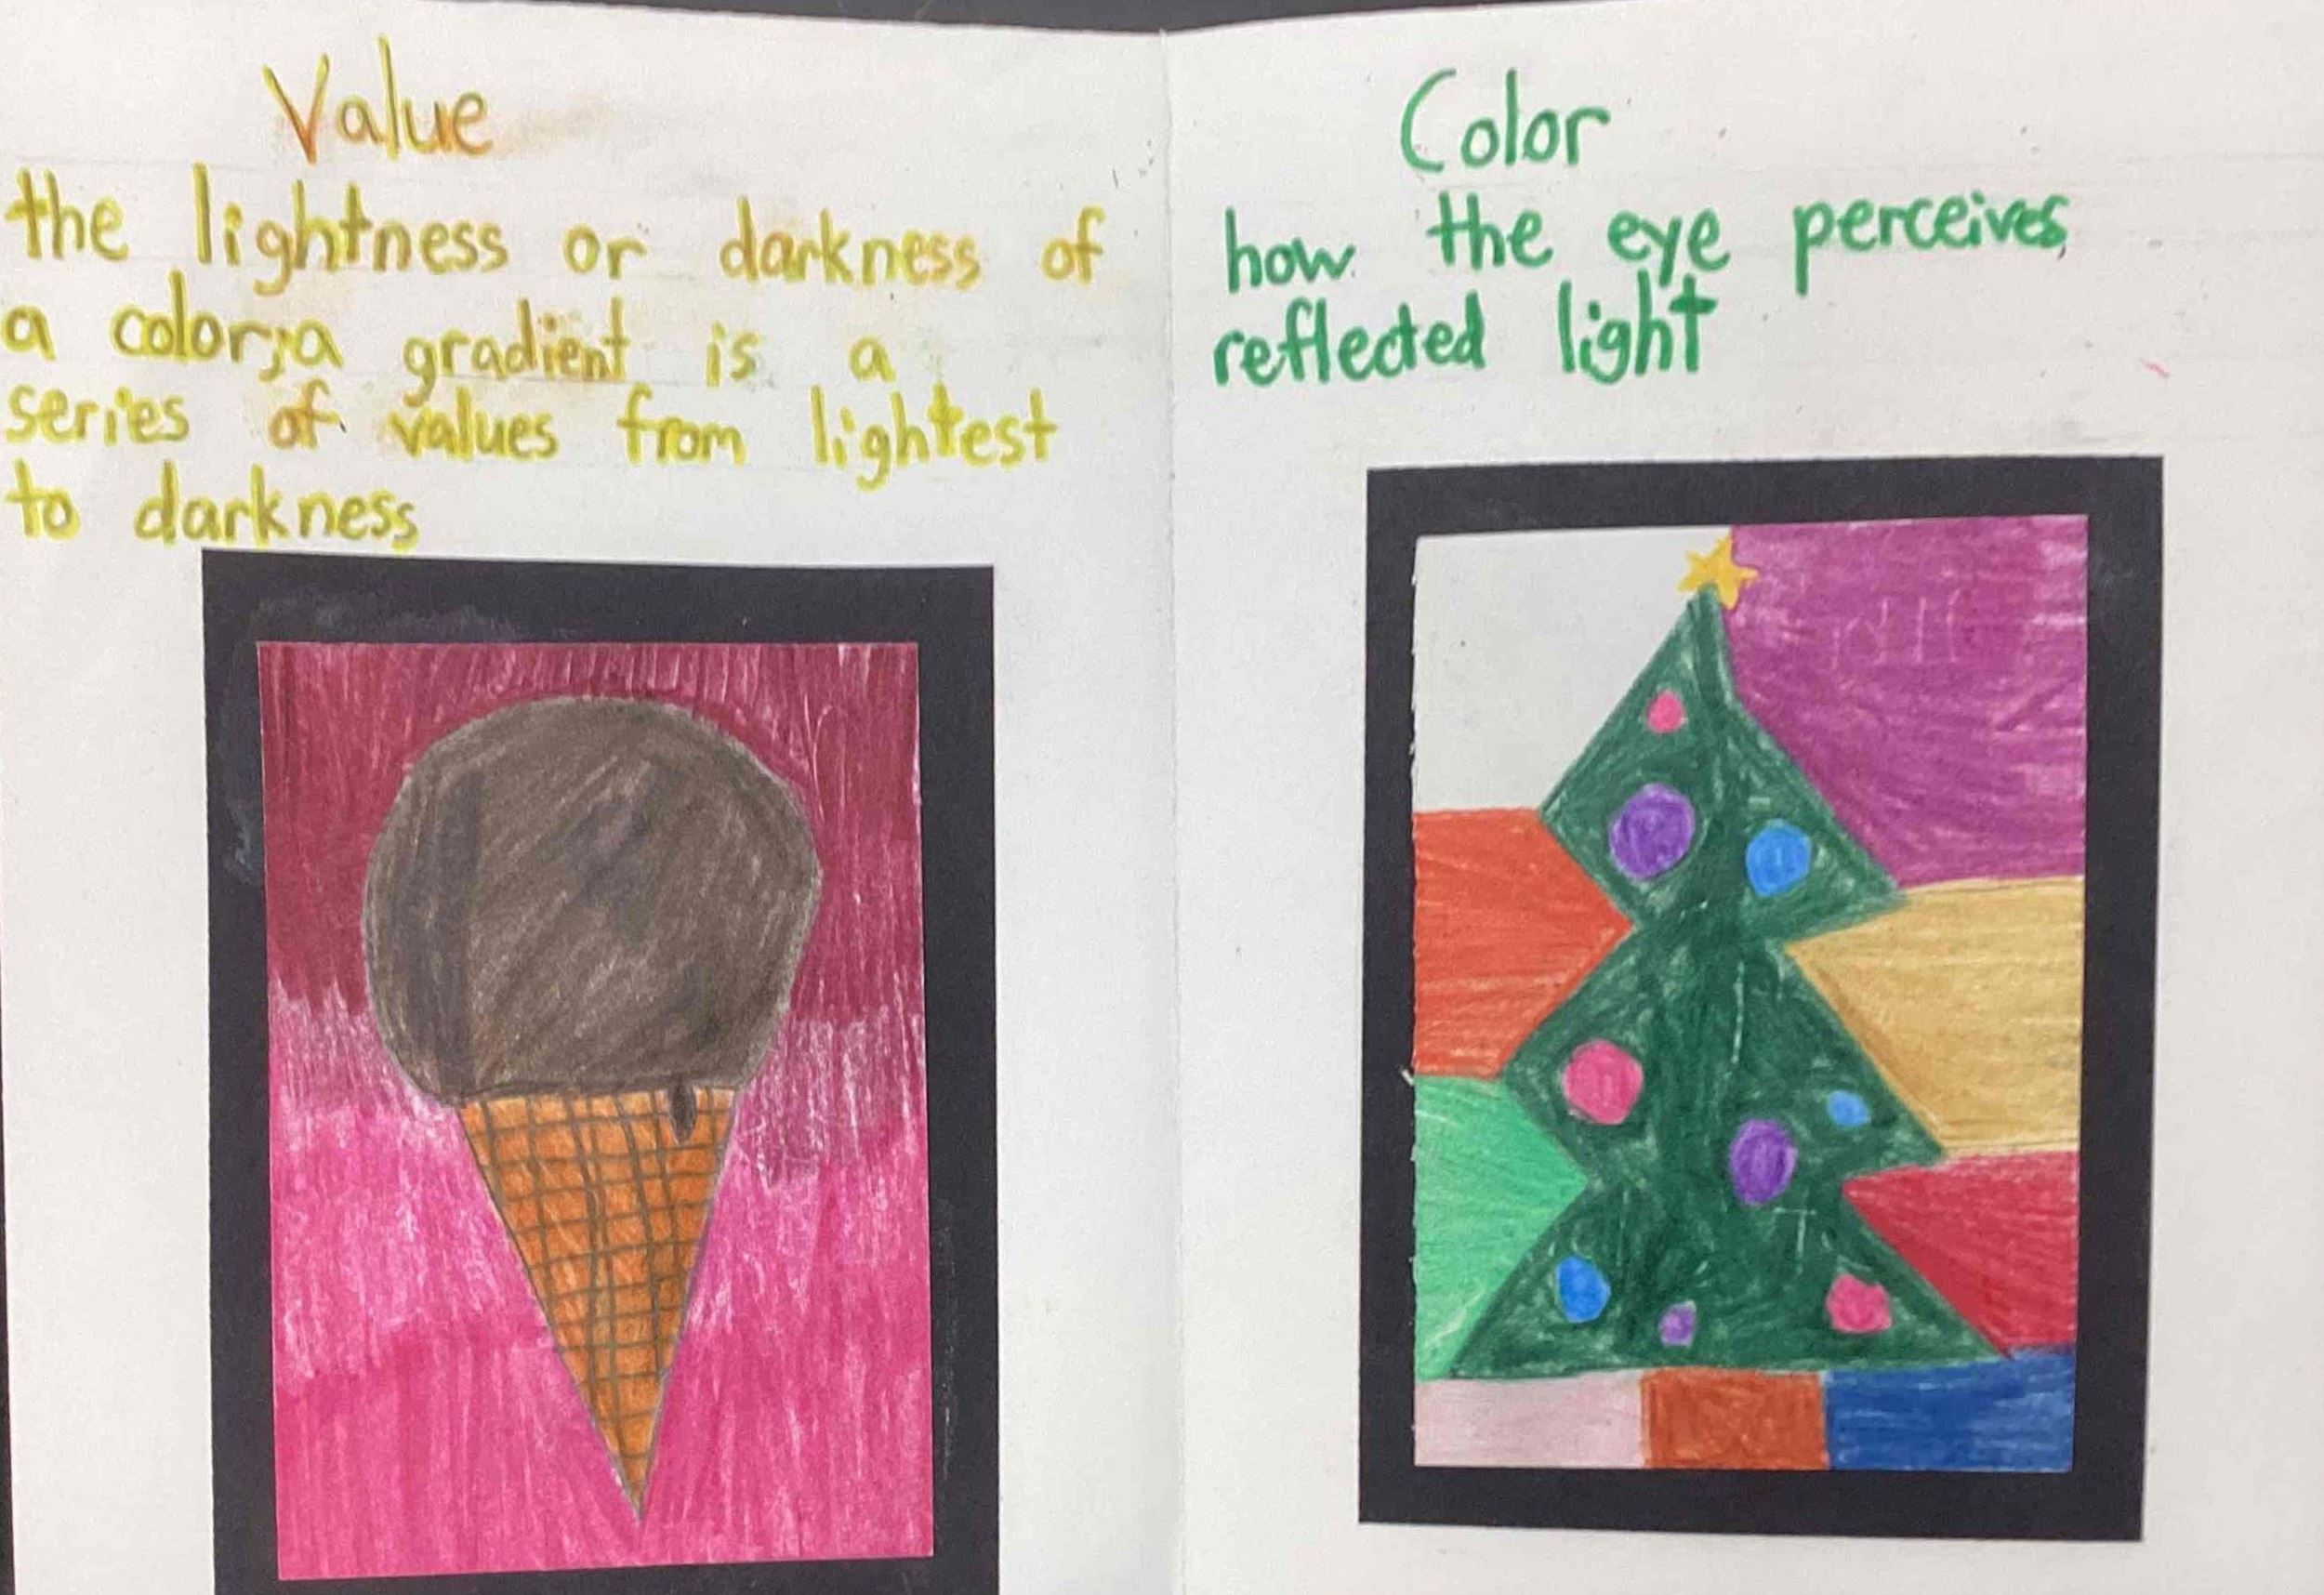 Value
the lightness or darkness of
a color;a gradient is a
series of values from lightest
to darkness
Color
how the eye perceives
reflected light